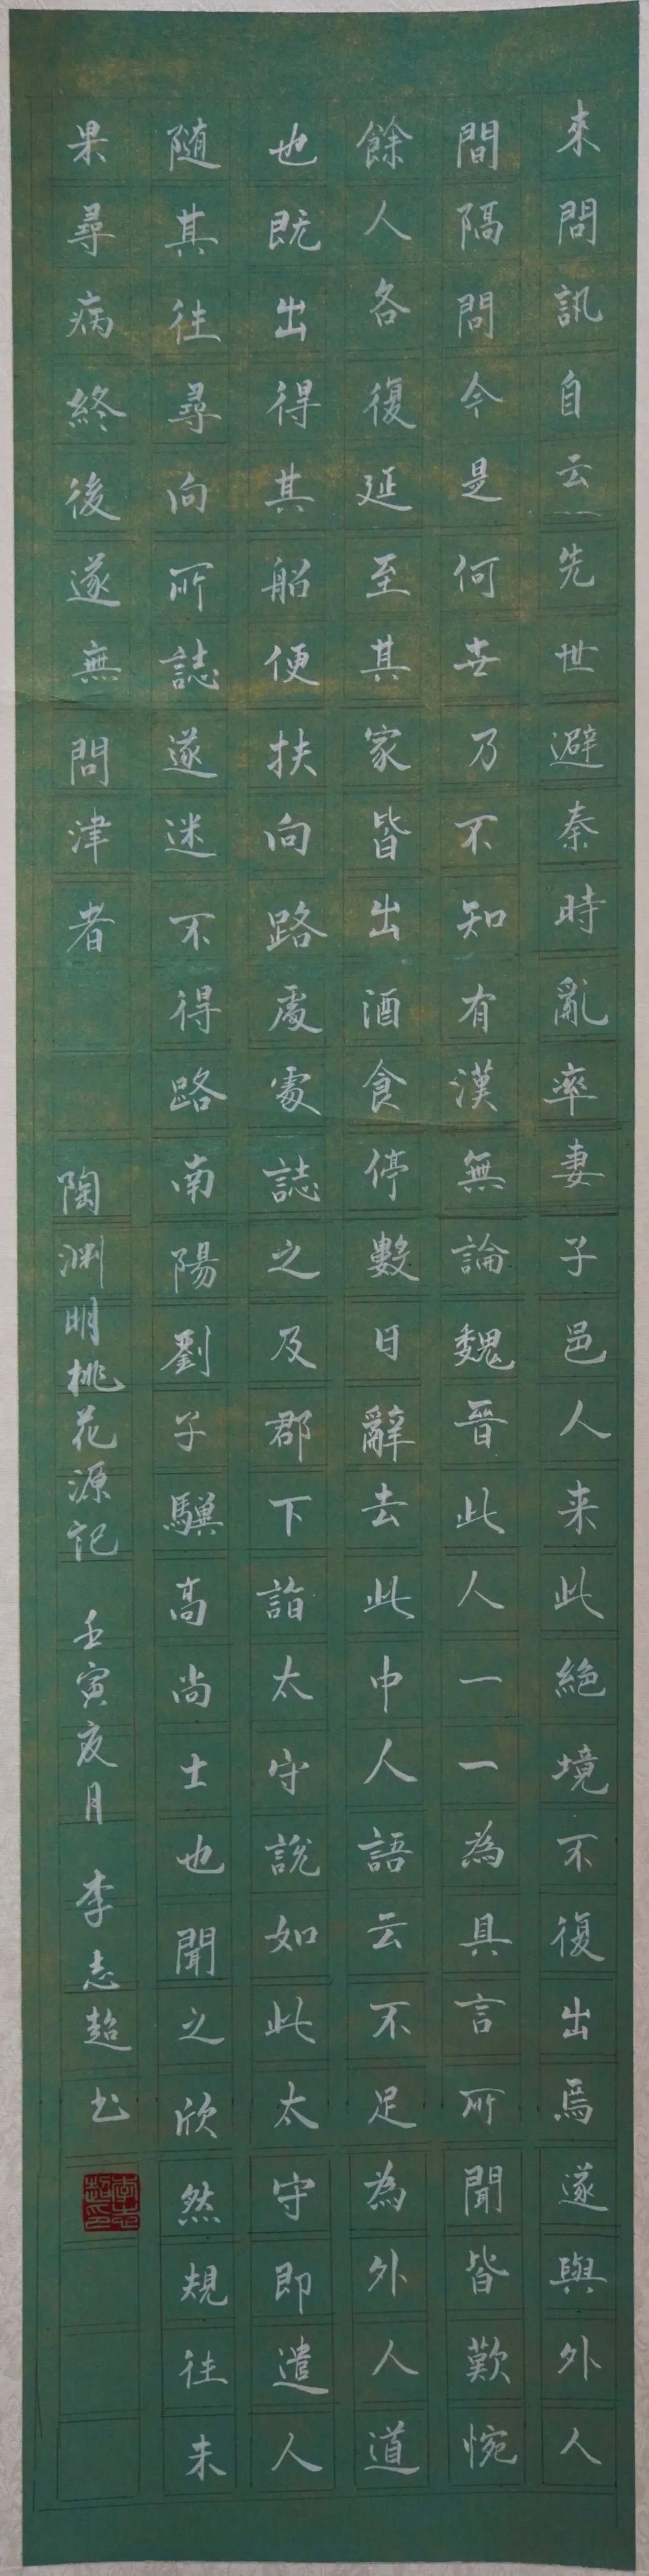 來問訊自云先世避秦時亂率妻子邑人来此絕境不復出焉遂與外人
間隔問今是何世乃不知有漢無論魏晉此人一一為具言所聞皆歎惋
餘人各復延至其家皆出酒食停數日辭去此中人語云不足為外人道
也既出得其船便扶向路處處誌之及郡下詣太守說如此太守即遣人
隨其往尋向所誌遂迷不得路南陽劉子驥高尚士也聞之欣然規往未
果尋病終後遂無問津者 陶渊明桃花源記 壬寅夜月 李志超书
李志超印